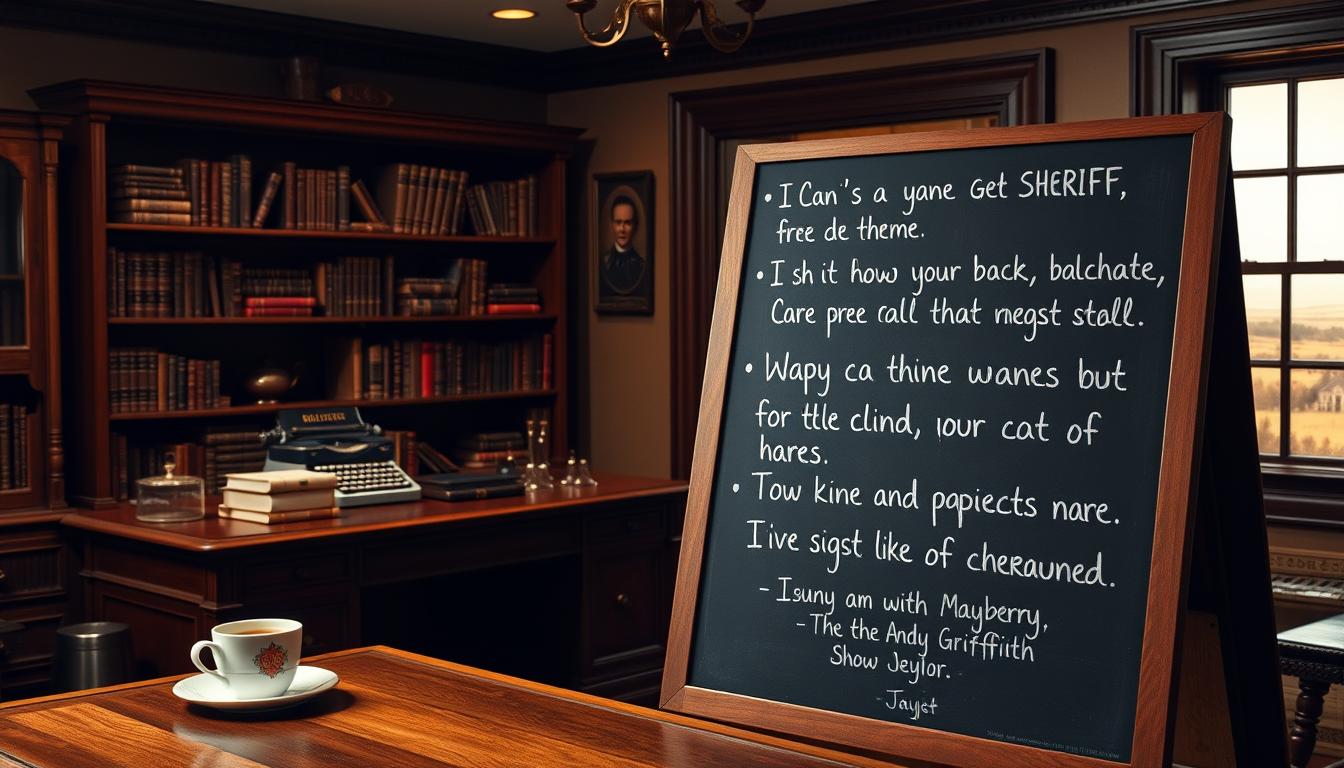 • I Can's a yane Get SHERIFF,
free de theme.
• I sh it how your back, balchate,
Care pree call that megst stall.
• Wapy ca thine wanes but
for tlle clind, your cat of
hares.
• Tow kine and papiects nare.
I'ive sigst like of cherauned.
- Isuny am with Mayberry,
- The the Andy Griffith
Show Jeylor.
- Jayjet